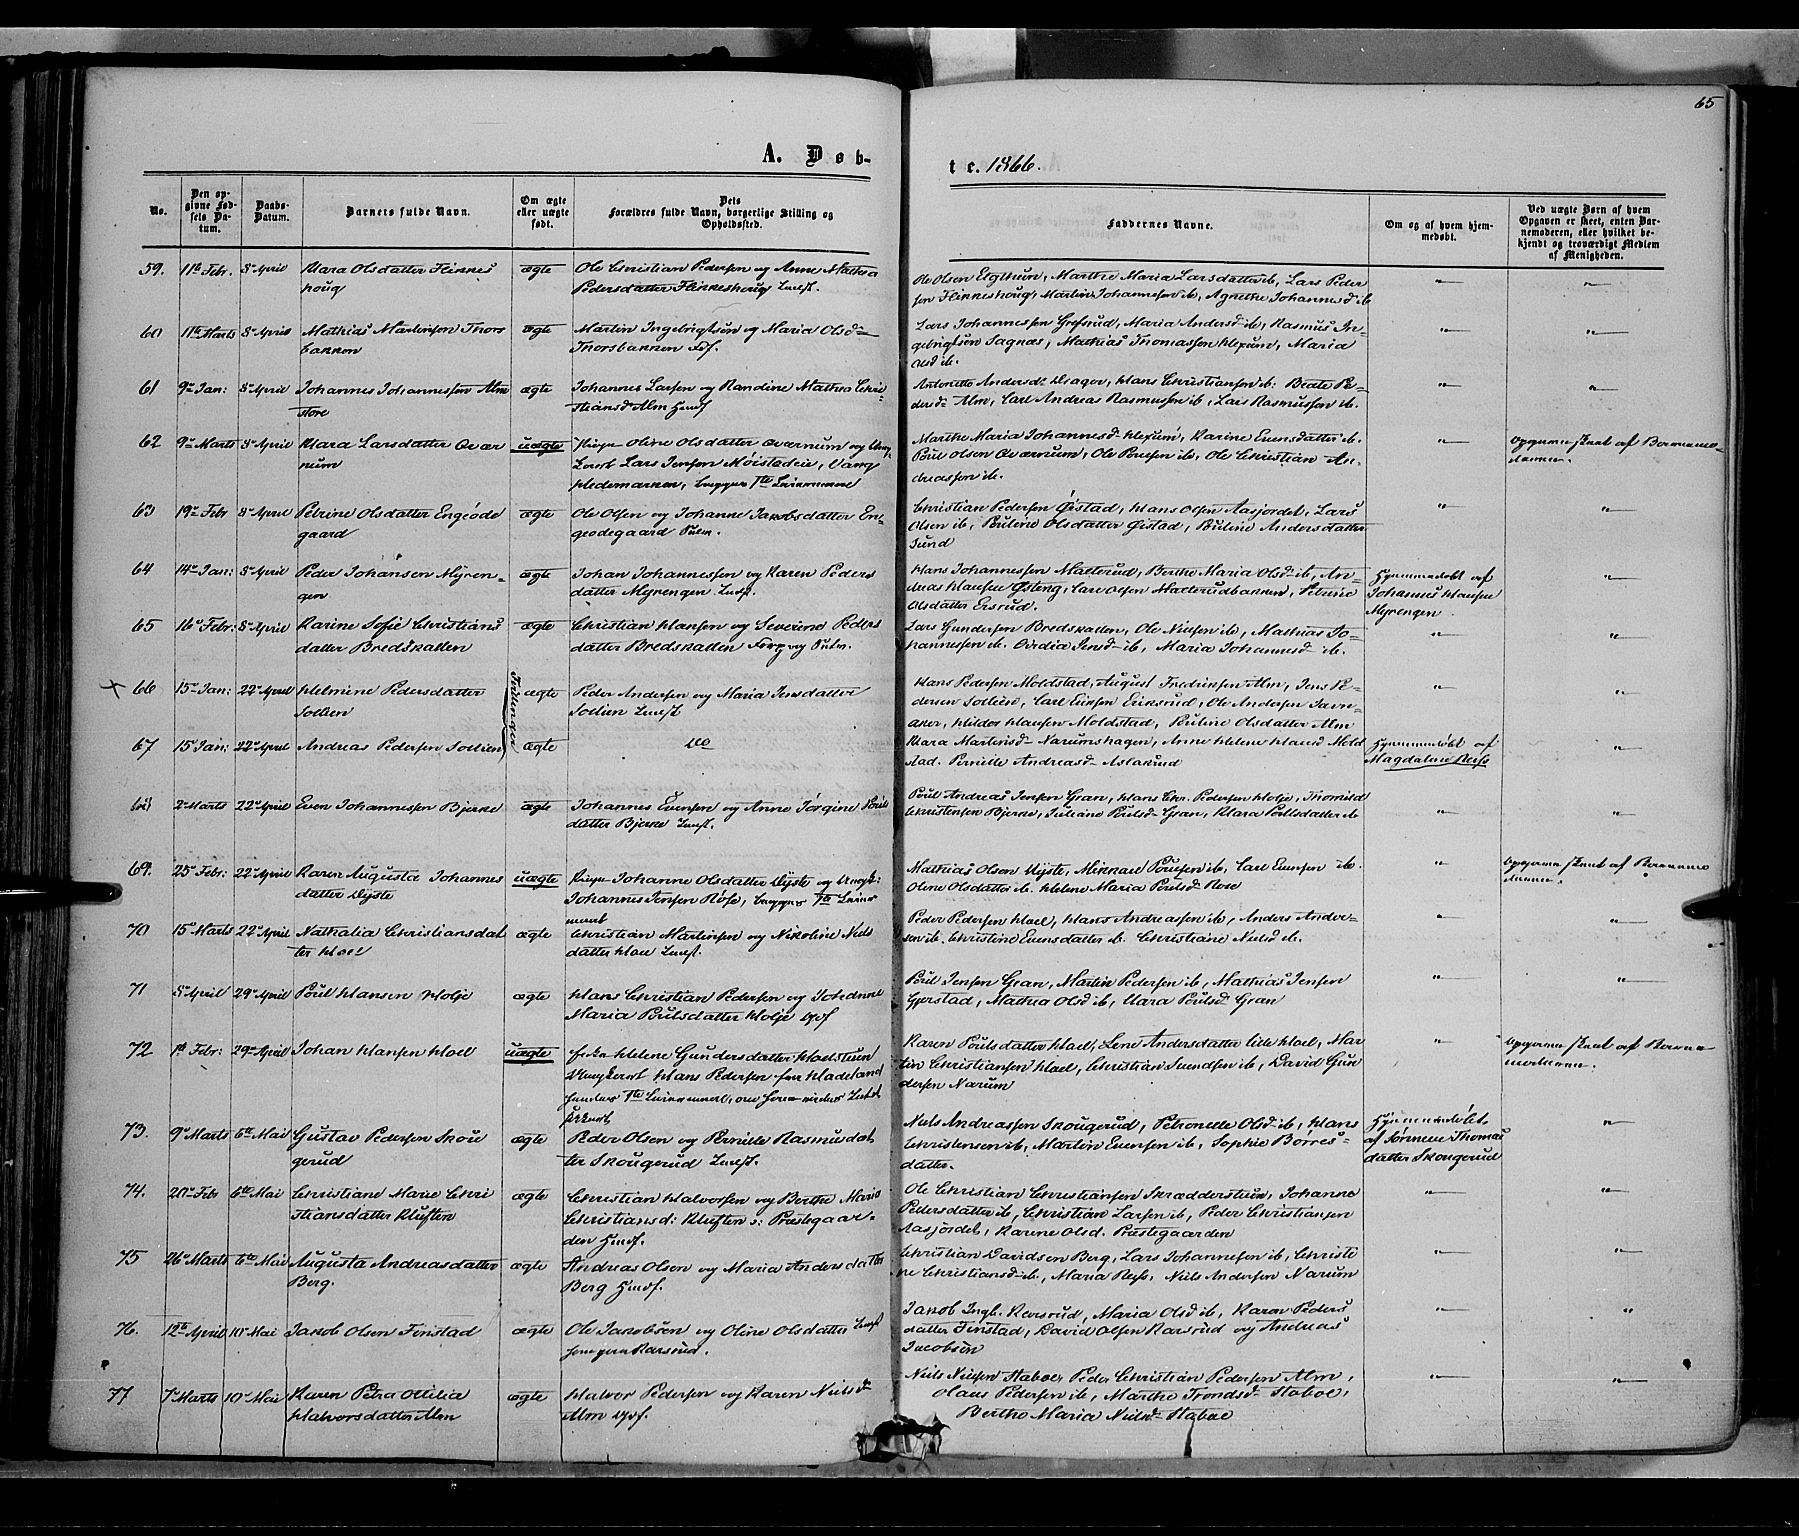 65
A. Døb-
te. 1866.
No.
Den op-
givne Fød-
sels Da-
tum.
Daabs-
Datum.
Barnets fulde Navn.
Om ægte
eller uægte
født.
Dets
Forældres fulde Navn, borgerlige Stilling og
Opholdssted.
Faddernes Navne.
Om og af hvem hjem-
medøbt.
Ved uægte Børn af hvem
Opgaven er skeet, enten Bar-
nemoderen, eller hvilket be-
kjendt og troværdigt Medlem
af Menigheden.
59. 11te Febr. 8de April Klara Olsdatter Flikkes ægte Ole Christian Pedersen og Anne Mathea
houg Pedersdatter Flikkeshoug
Ole Olsen Elgthun, Marthe Maria Larsdatter ib, Lars Peder
sen Flikkeshoug, Martin Johannesen ib, Agnethe Johannesd ib
60 11te Marts 8de April Mathias Martinsen Thors ægte Martin Ingebrigtsen og Maria Olsd
bakken Thorsbakken
Lars Johannessen Grefsrud, Maria Andersd ib, Rasmus In-
gebrigtsen Sagnæs, Mathias Thomassen Hexum, Maria
Olsd ib.
61 9de Jan: 8de April Johannes Johannessen Alm ægte Johannes Larsen og Randine Mathea Chri-
store stiansd Alm
Antonette Andersd Dragor, Hans Christiansen ib. Beate Pe-
dersd Alm, Carl Andreas Rasmussen ib, Lars Rasmussen ib.
62 9de Marts 8de April Klara Larsdatter Qvær uægte Pige Oline Olsdatter Qværnum og Ung
num Lars Jensen Møistadeie, Vang
Hedemarken, begges 1ste Leiermaal
Marthe Maria Johannesd Hexum, Karine Evensdatter ib.
Poul Olsen Qværnum, Ole Poulsen ib, Ole Christian An-
dreassen ib.
63 19de Febr 8de April Petrine Olsdatter Engeøde ægte Ole Olsen og Johanne Jakobsdatter En-
gaard geødegaard
Christian Pedersen Øistad, Hans Olsen Aasjordet, Lars
Olsen ib, Pauline Olsdatter Øistad, Pauline Andersdatter
Sund
64 14de Jan: 8de April Peder Johansen Myren- ægte Johan Johannessen og Karen Peders
gen datter Myrengen
Hans Johannessen Malterud, Berthe Maria Olsd ib, An-
dreas Hansen Østeng, Carl Olsen Malterudbakken, Petrine
Olsdatter Ersrud.
Hjemmedøbt af
Johannes Hansen
Myrengen
65 16de Febr: 8de April Karine Sofie Christians ægte Christian Hansen og Severine Peders
datter Bredskallen datter Bredskallen
Lars Gundersen Bredskallen, Ole Nielsen ib, Mathias Jo-
hannessen ib. Ovidia Jensd ib, Maria Johannesd ib.
66 15de Jan: 22de April Helmine Pedersdatter ægte Peder Andersen og Maria Jensdatter
Solien Solien
Tvillinger
Hans Pedersen Moldstad, August Fredriksen Alm, Jens Pe-
dersen Solien, Carl Eriksen Eriksrud, Ole Andersen Jevn-
aker, Hilder Hansen Moldstad, Pauline Olsdatter Alm
67 15de Jan: 22de April Andreas Pedersen Solien ægte do
Klara Martinsd Narumshagen, Anne Helene Hansd Mold
stad. Pernille Andreasd Aslaksrud
Hjemmedøbt af
Magdalene Reise
68 2de Marts 22de April Even Johannessen Bjerke ægte Johannes Evensen og Anne Jørgine Pouls
datter Bjerke
Poul Andreas Jensen Gran, Hans Chr. Pedersen Holje, Thomild
Christensen Bjerke, Juliane Poulsd Gran, Klara Poulsdatter ib
69. 25de Febr: 22de April Karen Augusta Johannes uægte Pige Johanne Olsdatter Dyste og Ungk:
datter Dyste Johannes Jensen Røse, begges 1ste Leier
maal
Mathias Olsen Dyste, Mikkal Poulsen ib, Carl Evensen ib.
Oline Olsdatter ib. Helene Maria Poulsd Rose
70 15de Marts 22de April Nathalia Christiansdat ægte Christian Martinsen og Nikoline Niels
ter Hoel datter Hoel
Peder Pedersen Hoel, Hans Andreassen ib, Anders Ander-
sen ib. Christine Evensdatter ib. Christiane Nielsd ib.
71 8de April 29de April Poul Hansen Holje ægte Hans Christian Pedersen og Johanne
Maria Poulsdatter Holje
Poul Jensen Gran, Martin Pedersen ib, Mathias Jensen
Gjerstad, Mathea Olsd ib, Klara Poulsd Gran
72 1ste Febr: 29de April Johan Hansen Hoel uægte Helene Gundersdatter Hoelstuen
Ungkarl Hans Pedersen fra Hadeland
Karen Poulsdatter Hoel, Lene Andersdatter lille Hoel, Mar
tin Christiansen Hoel, Christian Svendsen ib, David Gun
dersen Narum
73. 9de Marts 6te Mai Gustav Pedersen Skou ægte Peder Olsen og Pernille Rasmusdat
gerud ter Skougerud
Niels Andreassen Skougerud, Petronelle Olsd ib, Hans
Christensen ib, Martin Evensen ib, Sophie Børres-
datter.
Hjemmedøbt
af Tønnene Thomas
datter Skougerud
74. 20de Febr 6te Mai Christiane Marie Chri ægte Christian Halvorsen og Berthe Marie
stiansdatter Kluften Christiansd: Kluften : Præstegaar-
den
Ole Christian Christiansen Skrædderstuen, Johanne
Pedersdatter ib, Christian Larsen ib, Peder Christiansen
Aasjordet, Karine Olsd. Præstegaarden
75 26de Marts 6te Mai Augusta Andreasdatter ægte Andreas Olsen og Maria Andersdatter
Berg. Berg
Christian Davidsen Berg, Lars Johannesen ib, Christi
ne Christiansd ib, Maria Reise, Niels Andersen Narum
76. 12te April 10de Mai Jakob Olsen Finstad ægte Ole Jakobsen og Oline Olsdatter
Karsrud.
Jakob Ingb. Karsrud, Maria Olsd ib, Karen Peders
datter Finstad, David Olsen Karsrud og Andreas
Jacobsen
77 7de Marts 10de Mai Karen Petra Otilia ægte Halvor Pedersen og Karen Nielsd
Halvorsdatter Alm Alm
Niels Nielsen Staboe, Peder Christian Pedersen Alm,
Hans Pedersen ib, Marthe Trondsd Staboe,
Berthe Maria Nielsd Staboe